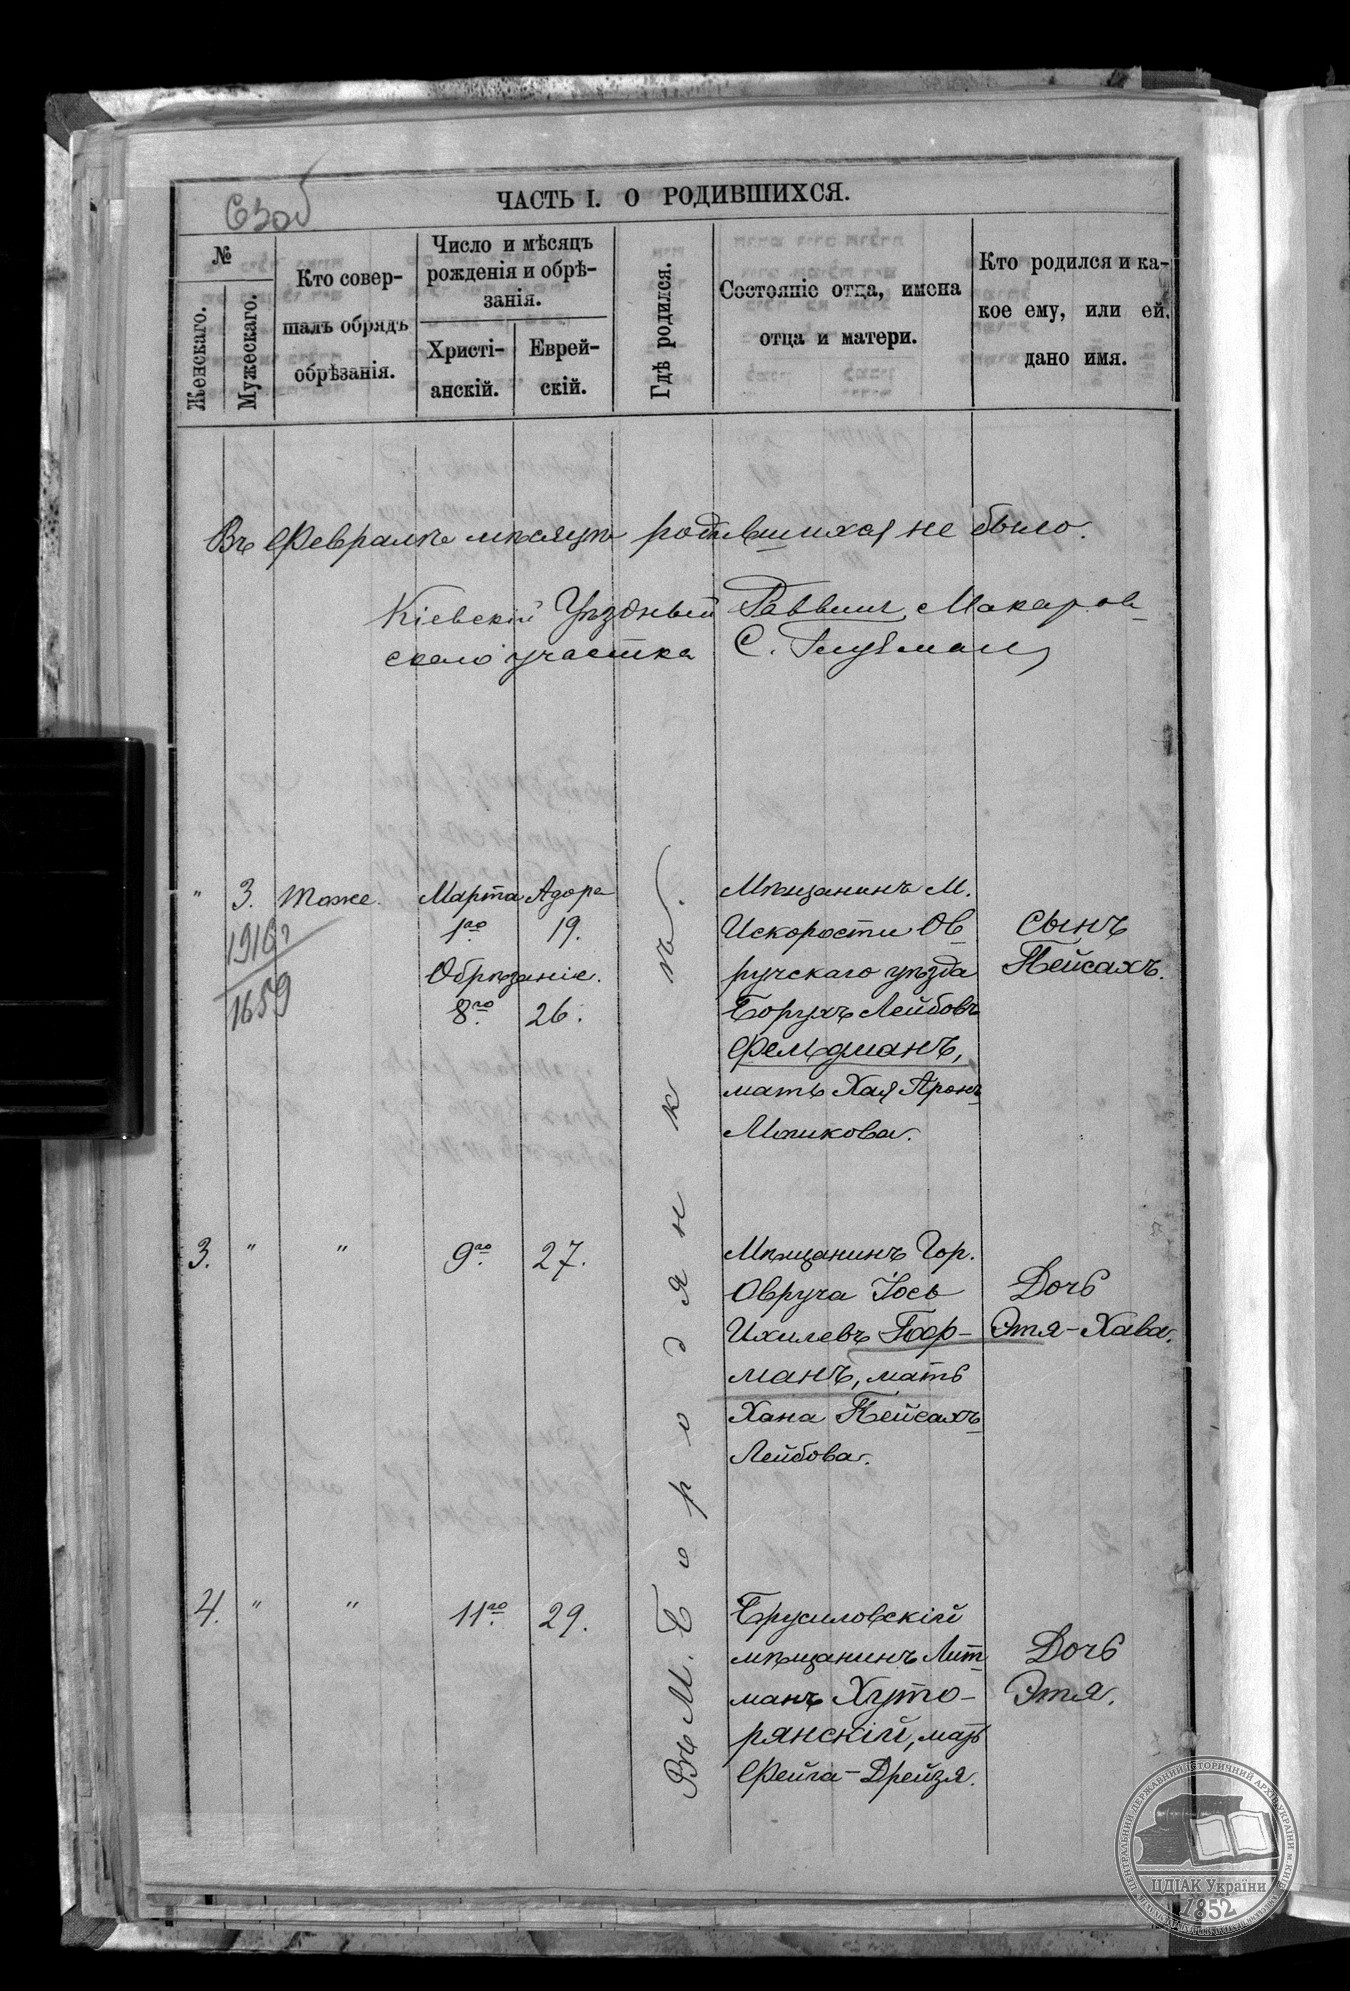 ЧАСТЬ I. О РОДИВШИХСЯ.
№
Женскаго.
Мужескаго.
Кто совер-
шалъ обрядъ
обрѣзанія.
Число и мѣсяцъ
рожденія и обрѣ-
занія.
Христі-
анскій.
Еврей-
скій.
Гдѣ родился.
Состояніе отца, имена
отца и матери.
Кто родился и ка-
кое ему, или ей
дано имя.
Въ Февралѣ мѣсяцѣ родившихся не было.
Кіевскій Уѣздный Раввинъ Макаров-
скаго участка С.
" 3. Тоже. Марта Адора
1го 19.
Обрѣзаніе.
8го 26.
1916
1659
Мѣщанинъ М.
Искорости Ов-
ручскаго уѣзда
Борухъ Лейбовъ
Фельдманъ,
мать Хая Аронъ-
Мошкова.
Сынъ
Пейсахъ.
3. " " 9го 27.
Мѣщанинъ Гор.
Овруча Іось
Ихилевъ Гор-
манъ, мать
Хана Пейсахъ-
Лейбова.
Дочь
Этя-Хава.
4. " " 11го 29.
Брусиловскій
мѣщанинъ Лит-
манъ Хуто-
рянскій, мать
Фейга-Дрейзя.
Дочь
Этя.
Въ М. Бородянкѣ.
ЦДІАК України
1852